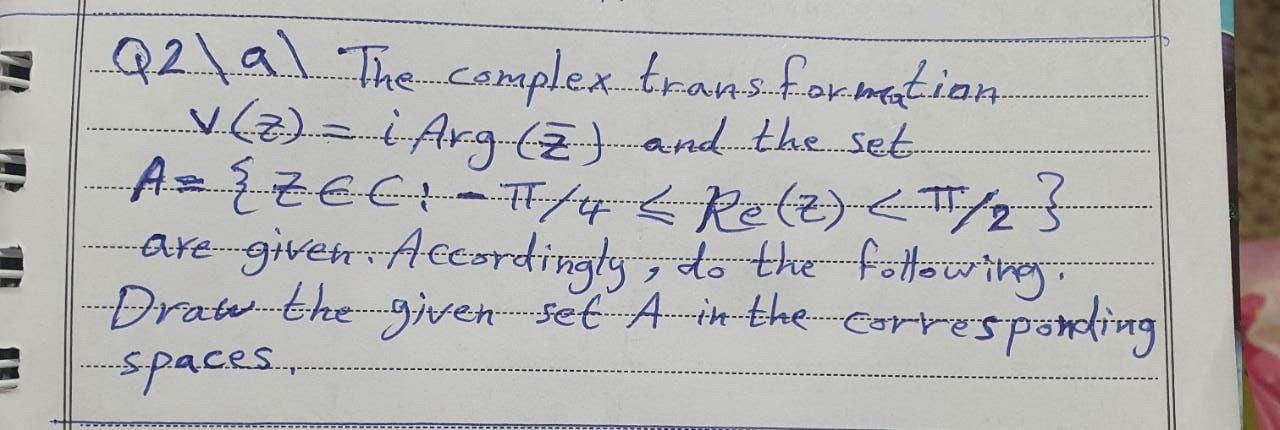 Q2\a\ The complex transformation
v(z) = i Arg(z̄) and the set
A= {z∈C: -π/4 ≤ Re(z) < π/2}
are given. Accordingly, do the following.
Draw the given set A in the corresponding
spaces.